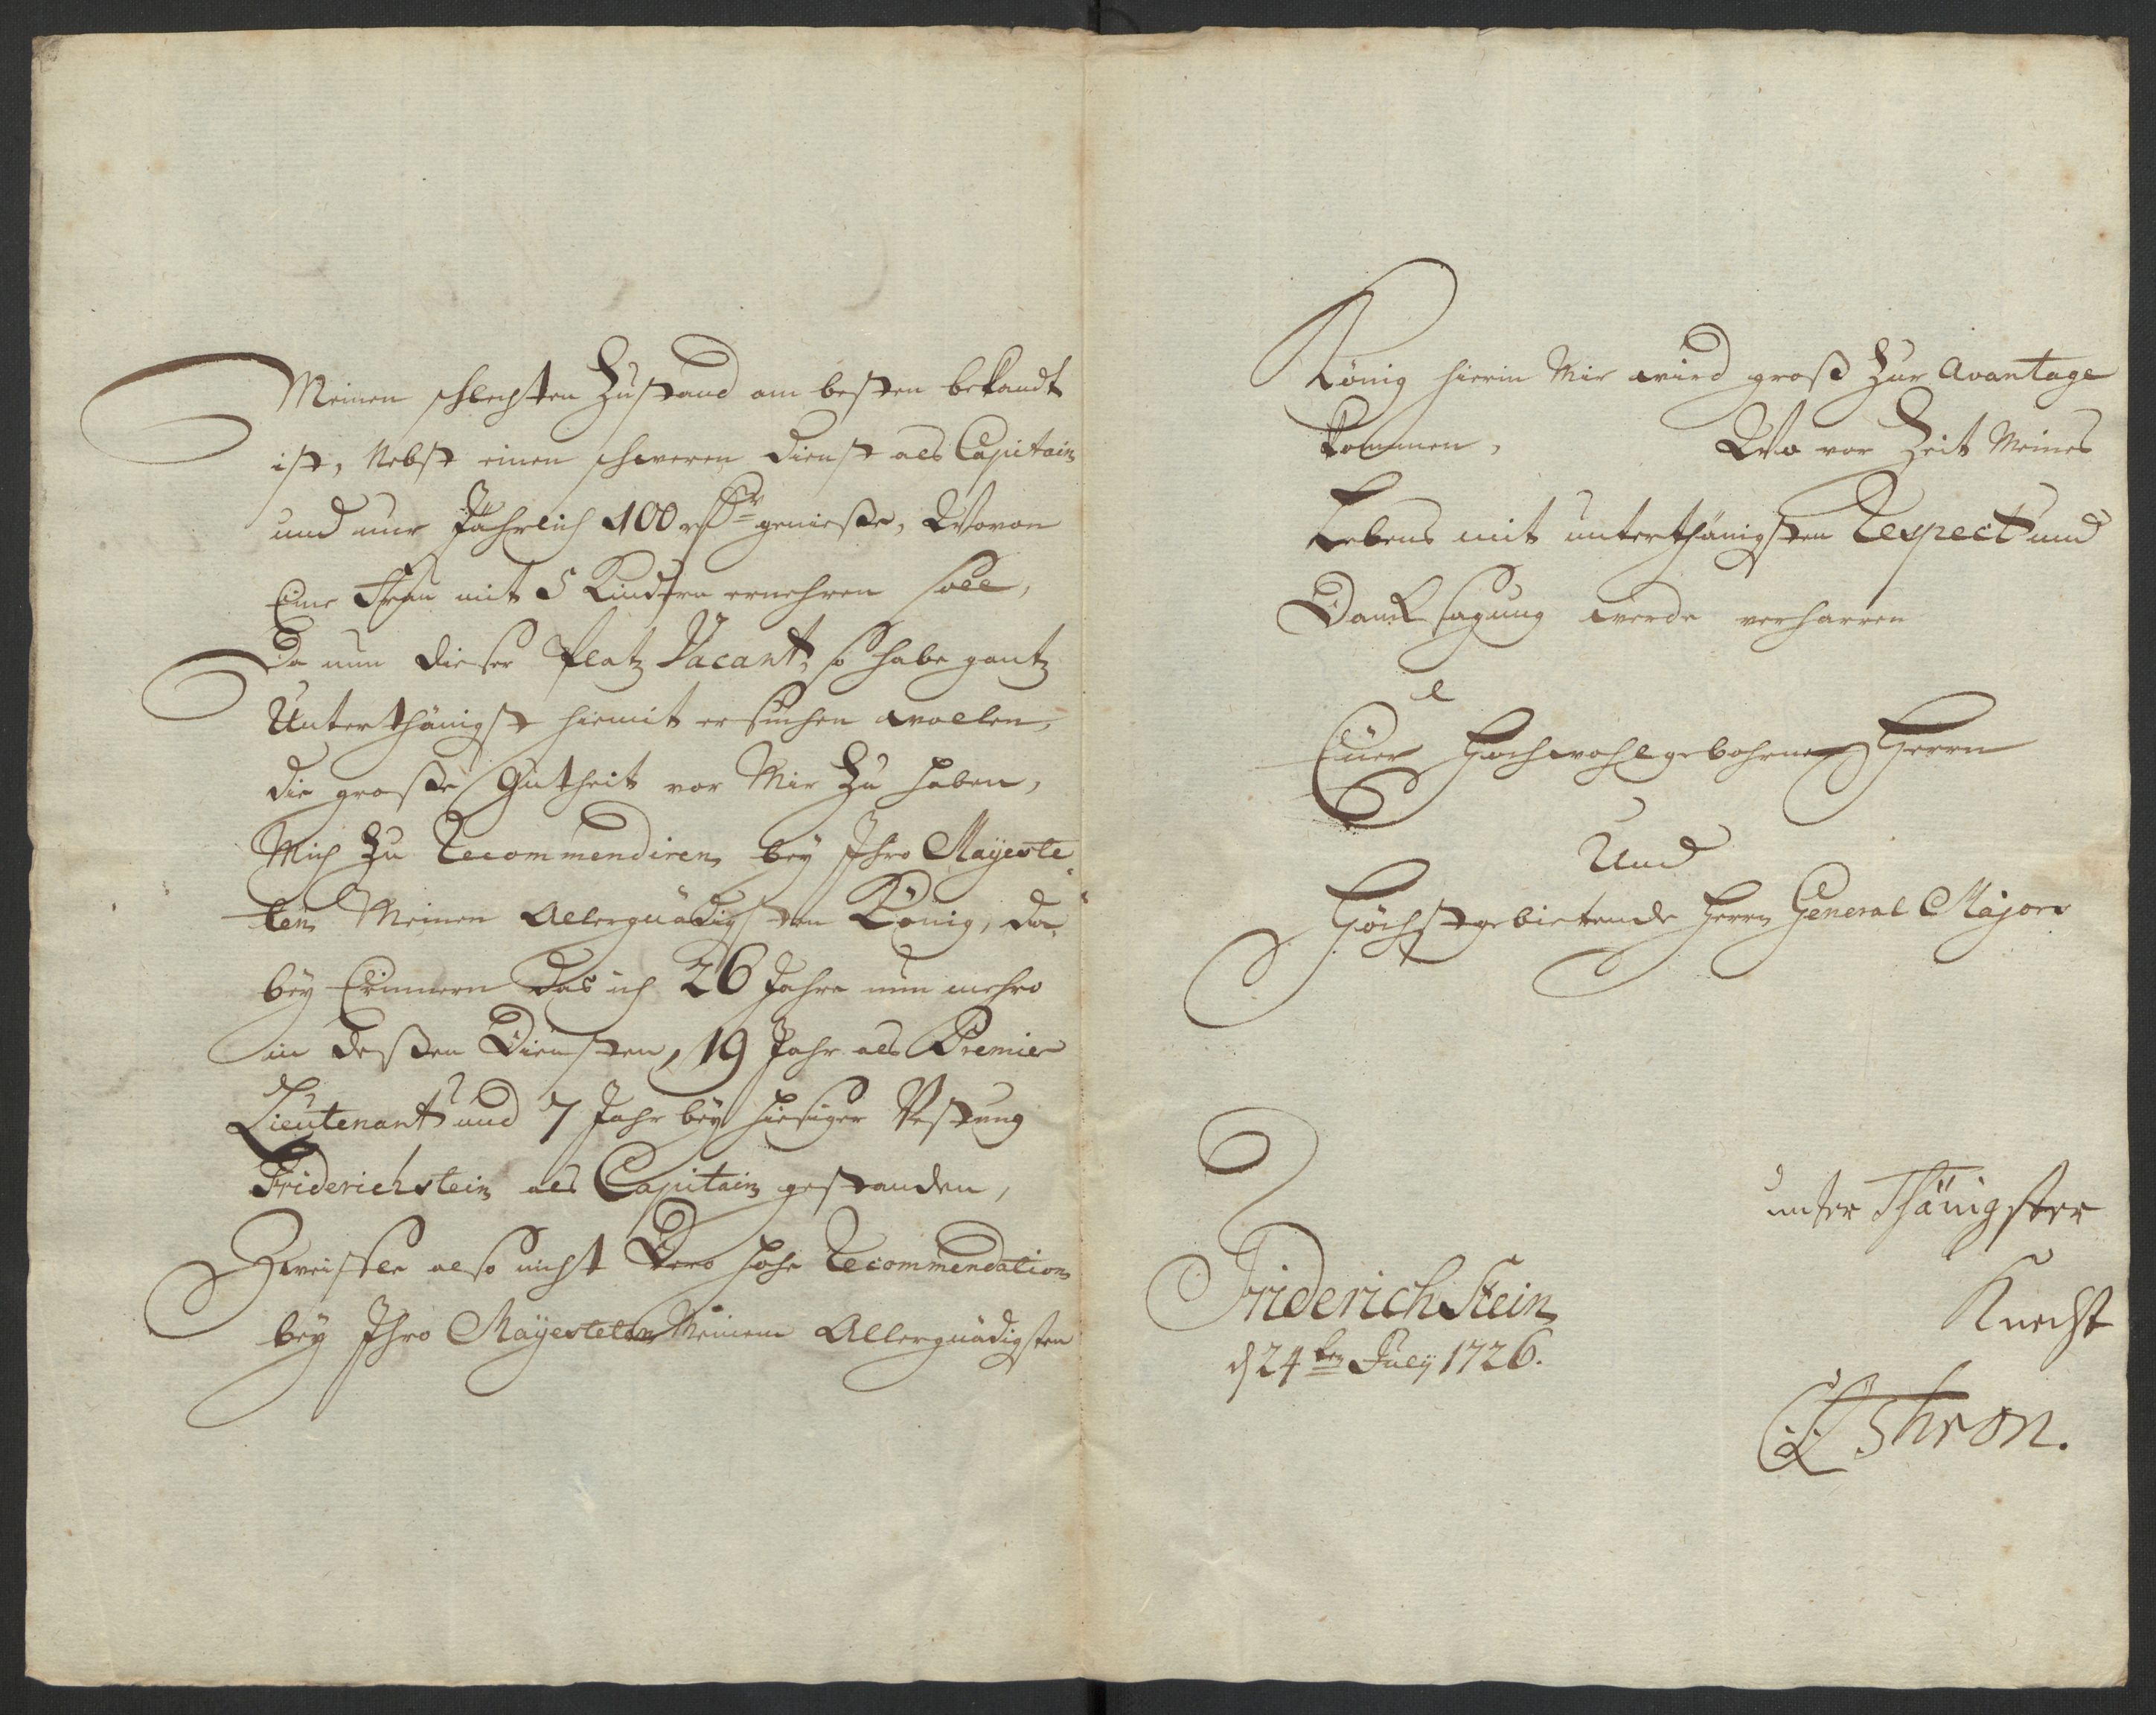 Meinen schlechten Zustand am besten bekandt
ist, Nebst einen schweren Dienst als Capitain
und nur Jährlich 100 rthr genieße, Wovon
Eine Frau mit 5 Kindern ernehren soll,
Da nun dieser Platz Vacant, so habe gantz
Unterthänigst hiemit ersuchen wollen,
die große Gutheit vor Mir Zu haben,
Mich Zu Recommendiren bey Ihro Mayeste
ten Meinen Allergnädigsten König, da
bey Erinnern Das ich 26 Jahre nun mehro
in deßen Diensten, 19 Jahr als Premier
Lieutenant und 7 Jahr bey hiesiger Vestung
Friderichstein als Capitain gestanden,
Zweifle also nicht Dero hohe Recommendation
bey Ihro Mayesteten Meinem Allergnädigsten
König hierin Mir wird groß Zur Avantage
kommen, Wo vor Zeit Meines
Lebens mit unterthänigsten Respect und
Dancksagung werde verharren
Euer Hochwohlgebohrner Herrn
Und
Höchstgebietende Herrn General Major
unter Thänigster
Knecht
FriderichStein
d 24ten July 1726.